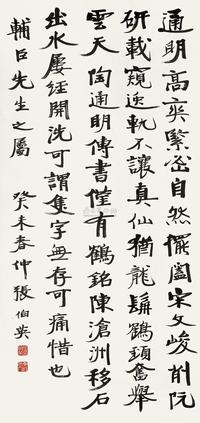 通明高爽緊密自然擺闔宋文峻削阮
研載窺逸軌不讓真仙猶龍髯鶴頭奮舉
雲天 陶通明傳書僅有鶴銘陳滄洲移石
出水屢經開洗可謂隻字無存可痛惜也
輔臣先生之屬
癸未春仲張伯英